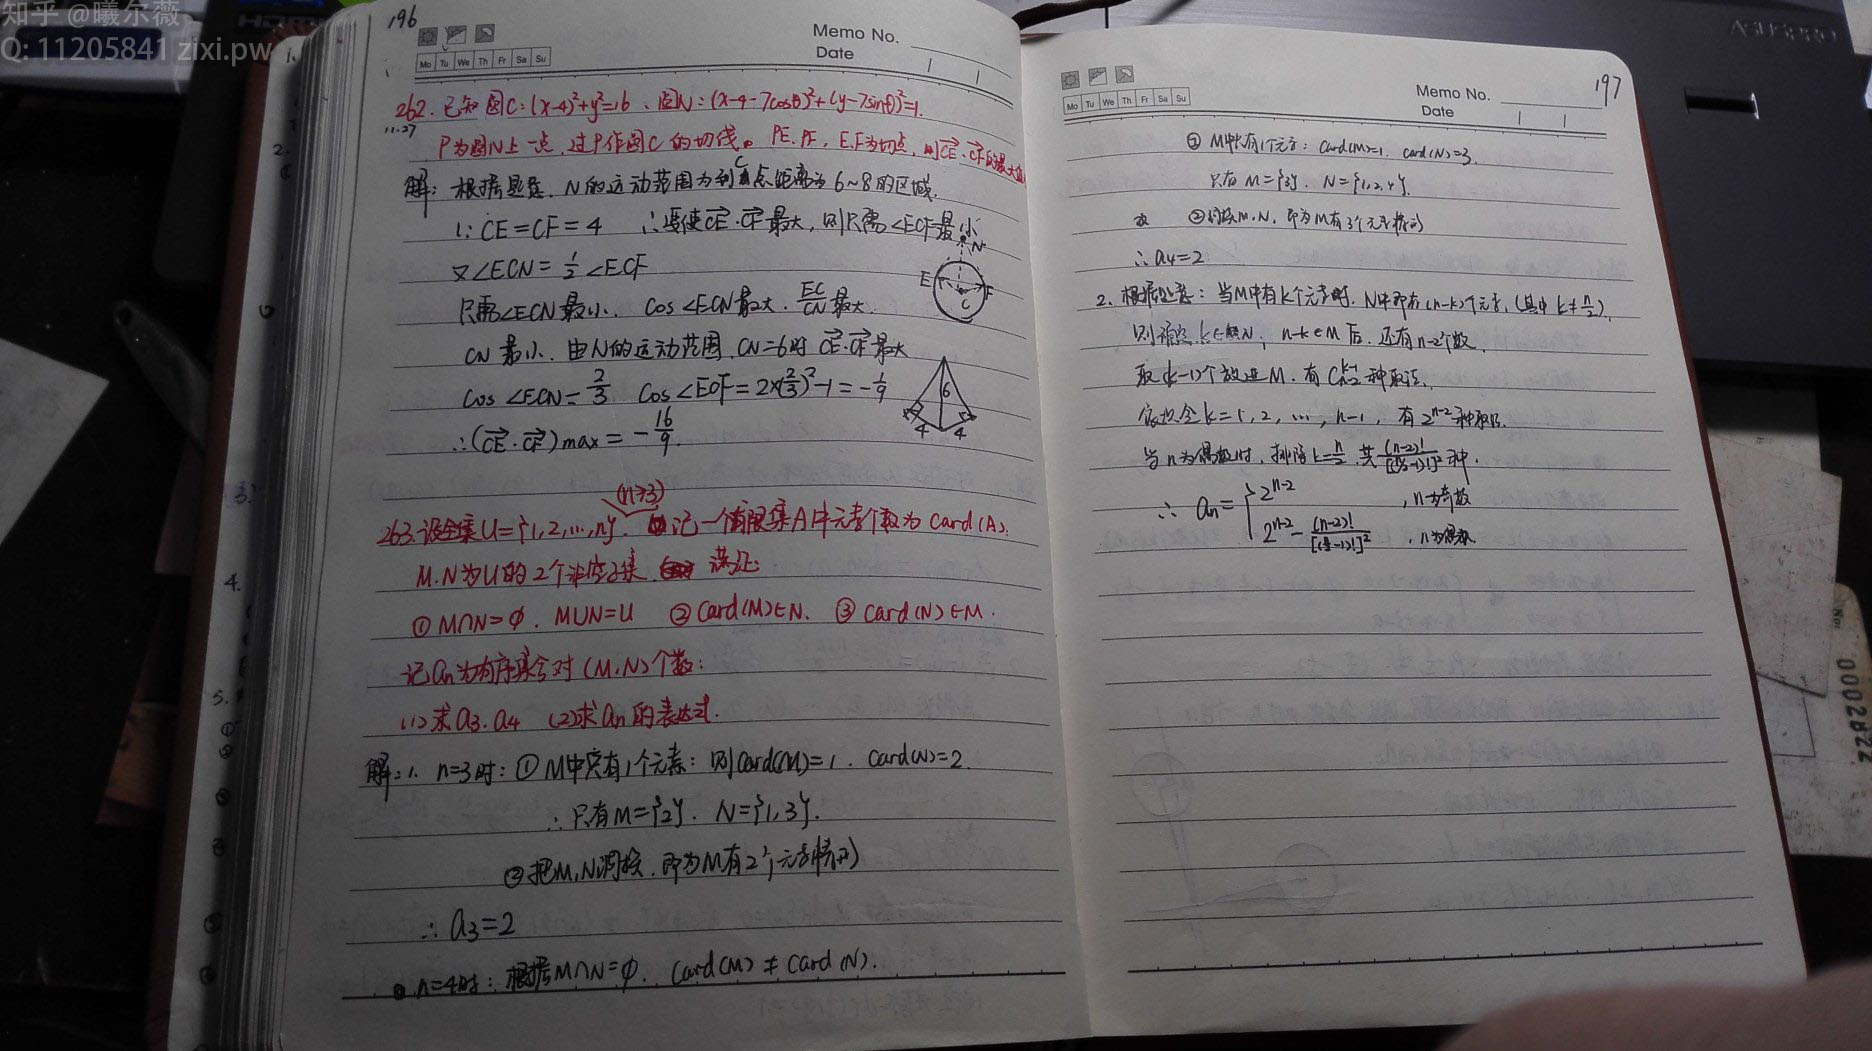 知乎 @曦尔薇
Q: 11205841 zixi.pw
ASUSPRO
0002822
196
Memo No.
Date
Mo Tu We Th Fr Sa Su
262. 已知圆C:(x-4)²+y²=16、圆N:(x-4-7cosθ)²+(y-7sinθ)²=1.
11.27
P为圆N上一点,过P作圆C的切线。PE.PF,E.F为切点,则CE·CF的最大值
解:根据题意,N的运动范围为到C点距离为6~8的区域.
∵CE=CF=4 ∴要使CE·CF最大,则只需∠ECF最小
又∠ECN=½∠ECF
只需∠ECN最小. cos∠ECN最大. EC/CN最大.
CN最小. 由N的运动范围,CN=6时CE·CF最大
cos∠ECN=2/3 cos∠ECF=2×(2/3)²-1=-1/9
∴(CE·CF)max=-16/9.
E F C N
6
4 4
(n≥3)
263.设全集U={1,2,…,n}. 记一个有限集A中元素个数为card(A).
M.N为U的2个非空子集 满足:
①M∩N=∅. M∪N=U ②card(M)∈N. ③card(N)∈M.
记an为有序集合对(M.N)个数:
(1)求a3.a4 (2)求an的表达式.
解:1. n=3时:①M中只有1个元素:则card(M)=1. card(N)=2.
∴只有M={2}. N={1,3}.
②把M,N调换.即为M有2个元素情况)
∴a3=2
n=4时:根据M∩N=∅. card(M)≠card(N).
197
Memo No.
Date
Mo Tu We Th Fr Sa Su
① M中有1个元素:card(M)=1. card(N)=3.
只有M={3}. N={1,2,4}.
②调换M.N.即为M有3个元素情况)
∴a4=2
2.根据题意:当M中有k个元素时.N中即有(n-k)个元素,(其中k≠n/2).
则确定k∈N,n-k∈M后.还有n-2个数.
取(k-1)个放进M.有C_{n-2}^{k-1}种取法.
依次令k=1,2,…,n-1,有2^{n-2}种取法.
当n为偶数时,排除k=n/2.共(n-2)!/[(n/2-1)!]²种.
∴ an={2^{n-2} ,n为奇数
2^{n-2}-(n-2)!/[(n/2-1)!]² ,n为偶数.